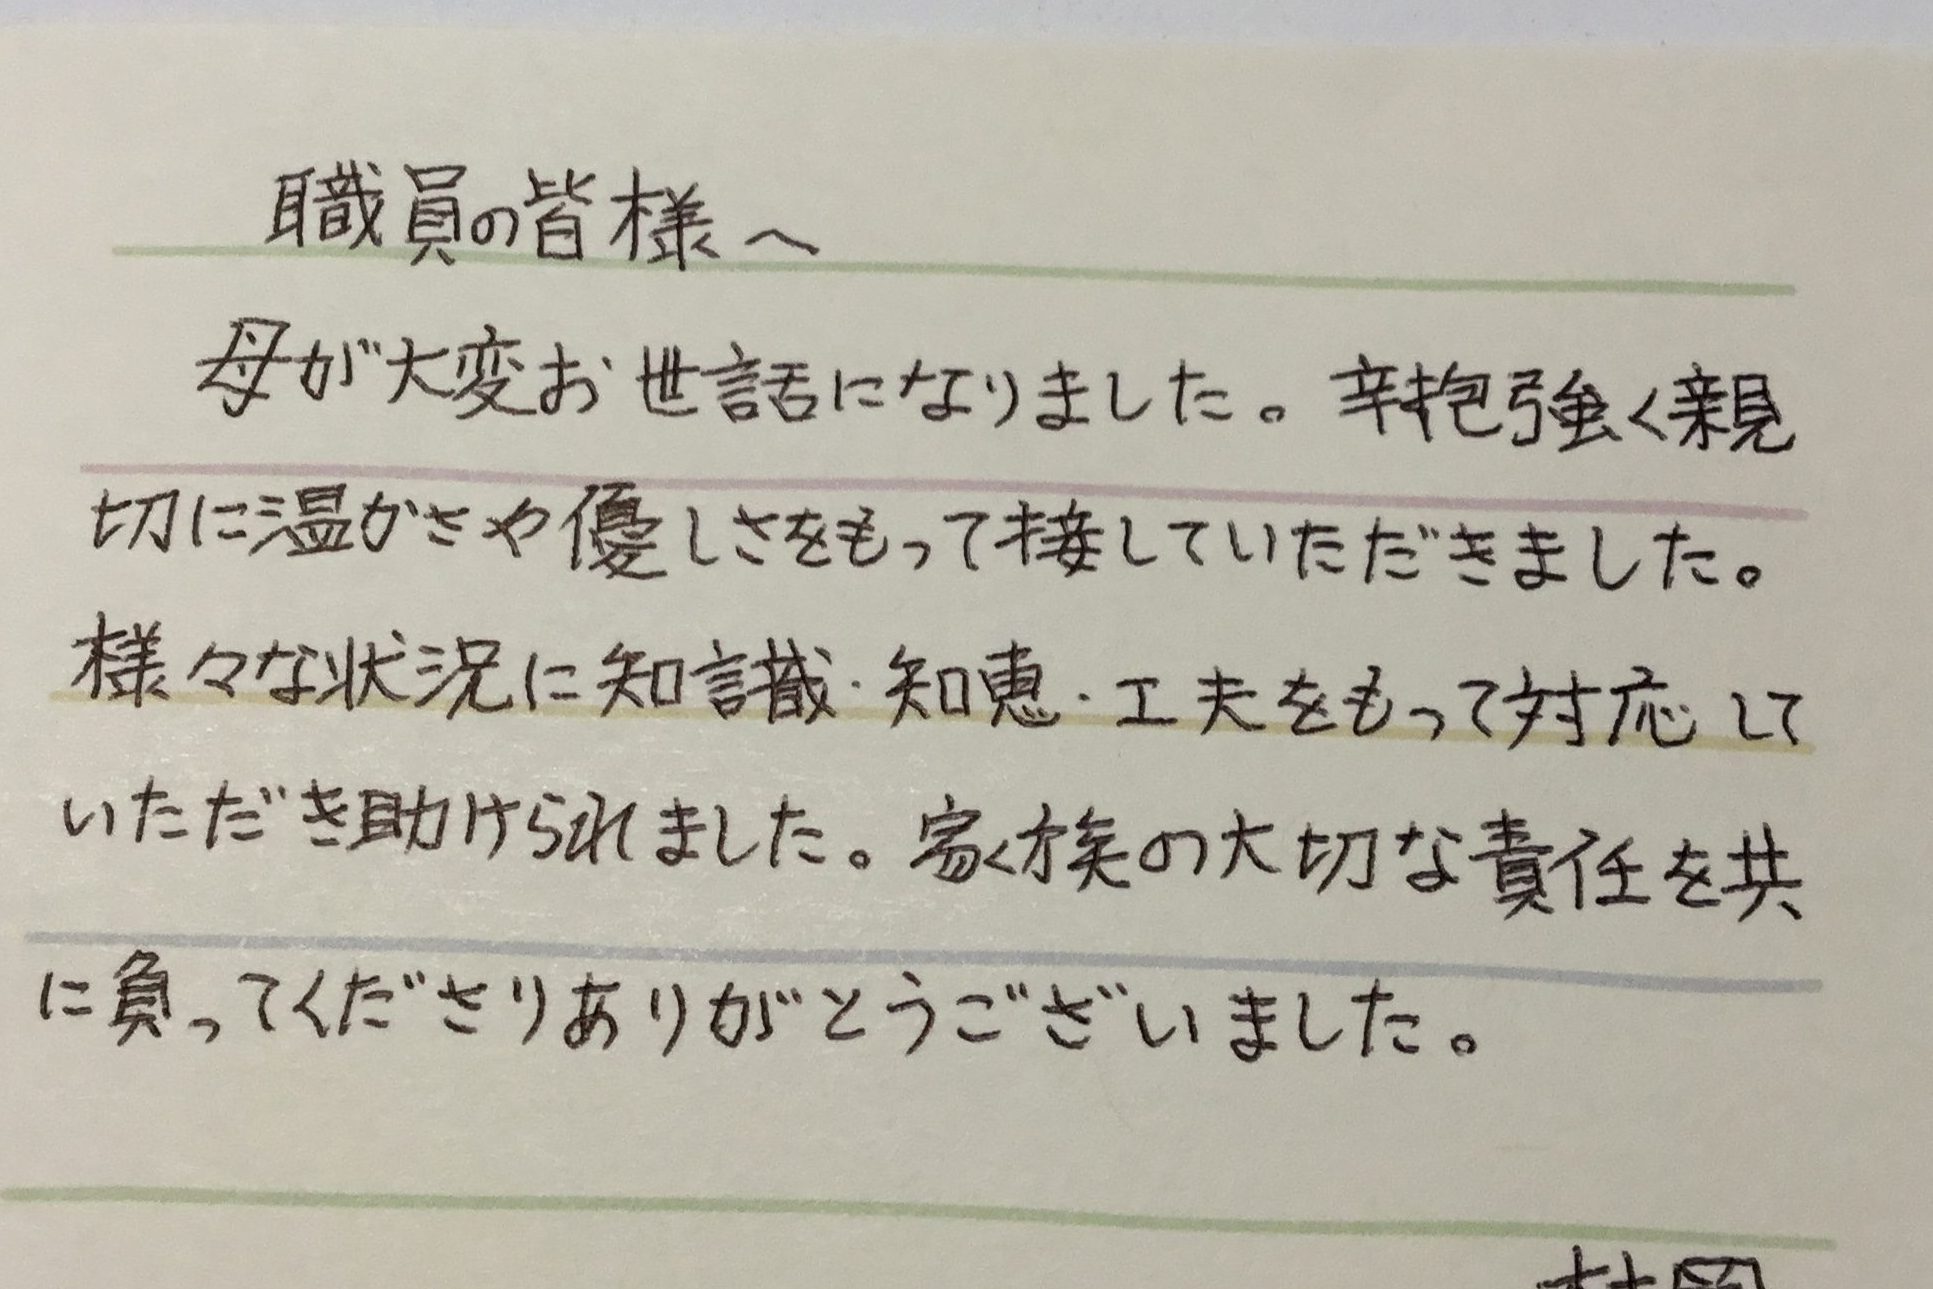 職員の皆様へ
母が大変お世話になりました。辛抱強く親
切に温かさや優しさをもって接していただきました。
様々な状況に知識・知恵・工夫をもって対応して
いただき助けられました。家族の大切な責任を共
に負ってくださりありがとうございました。